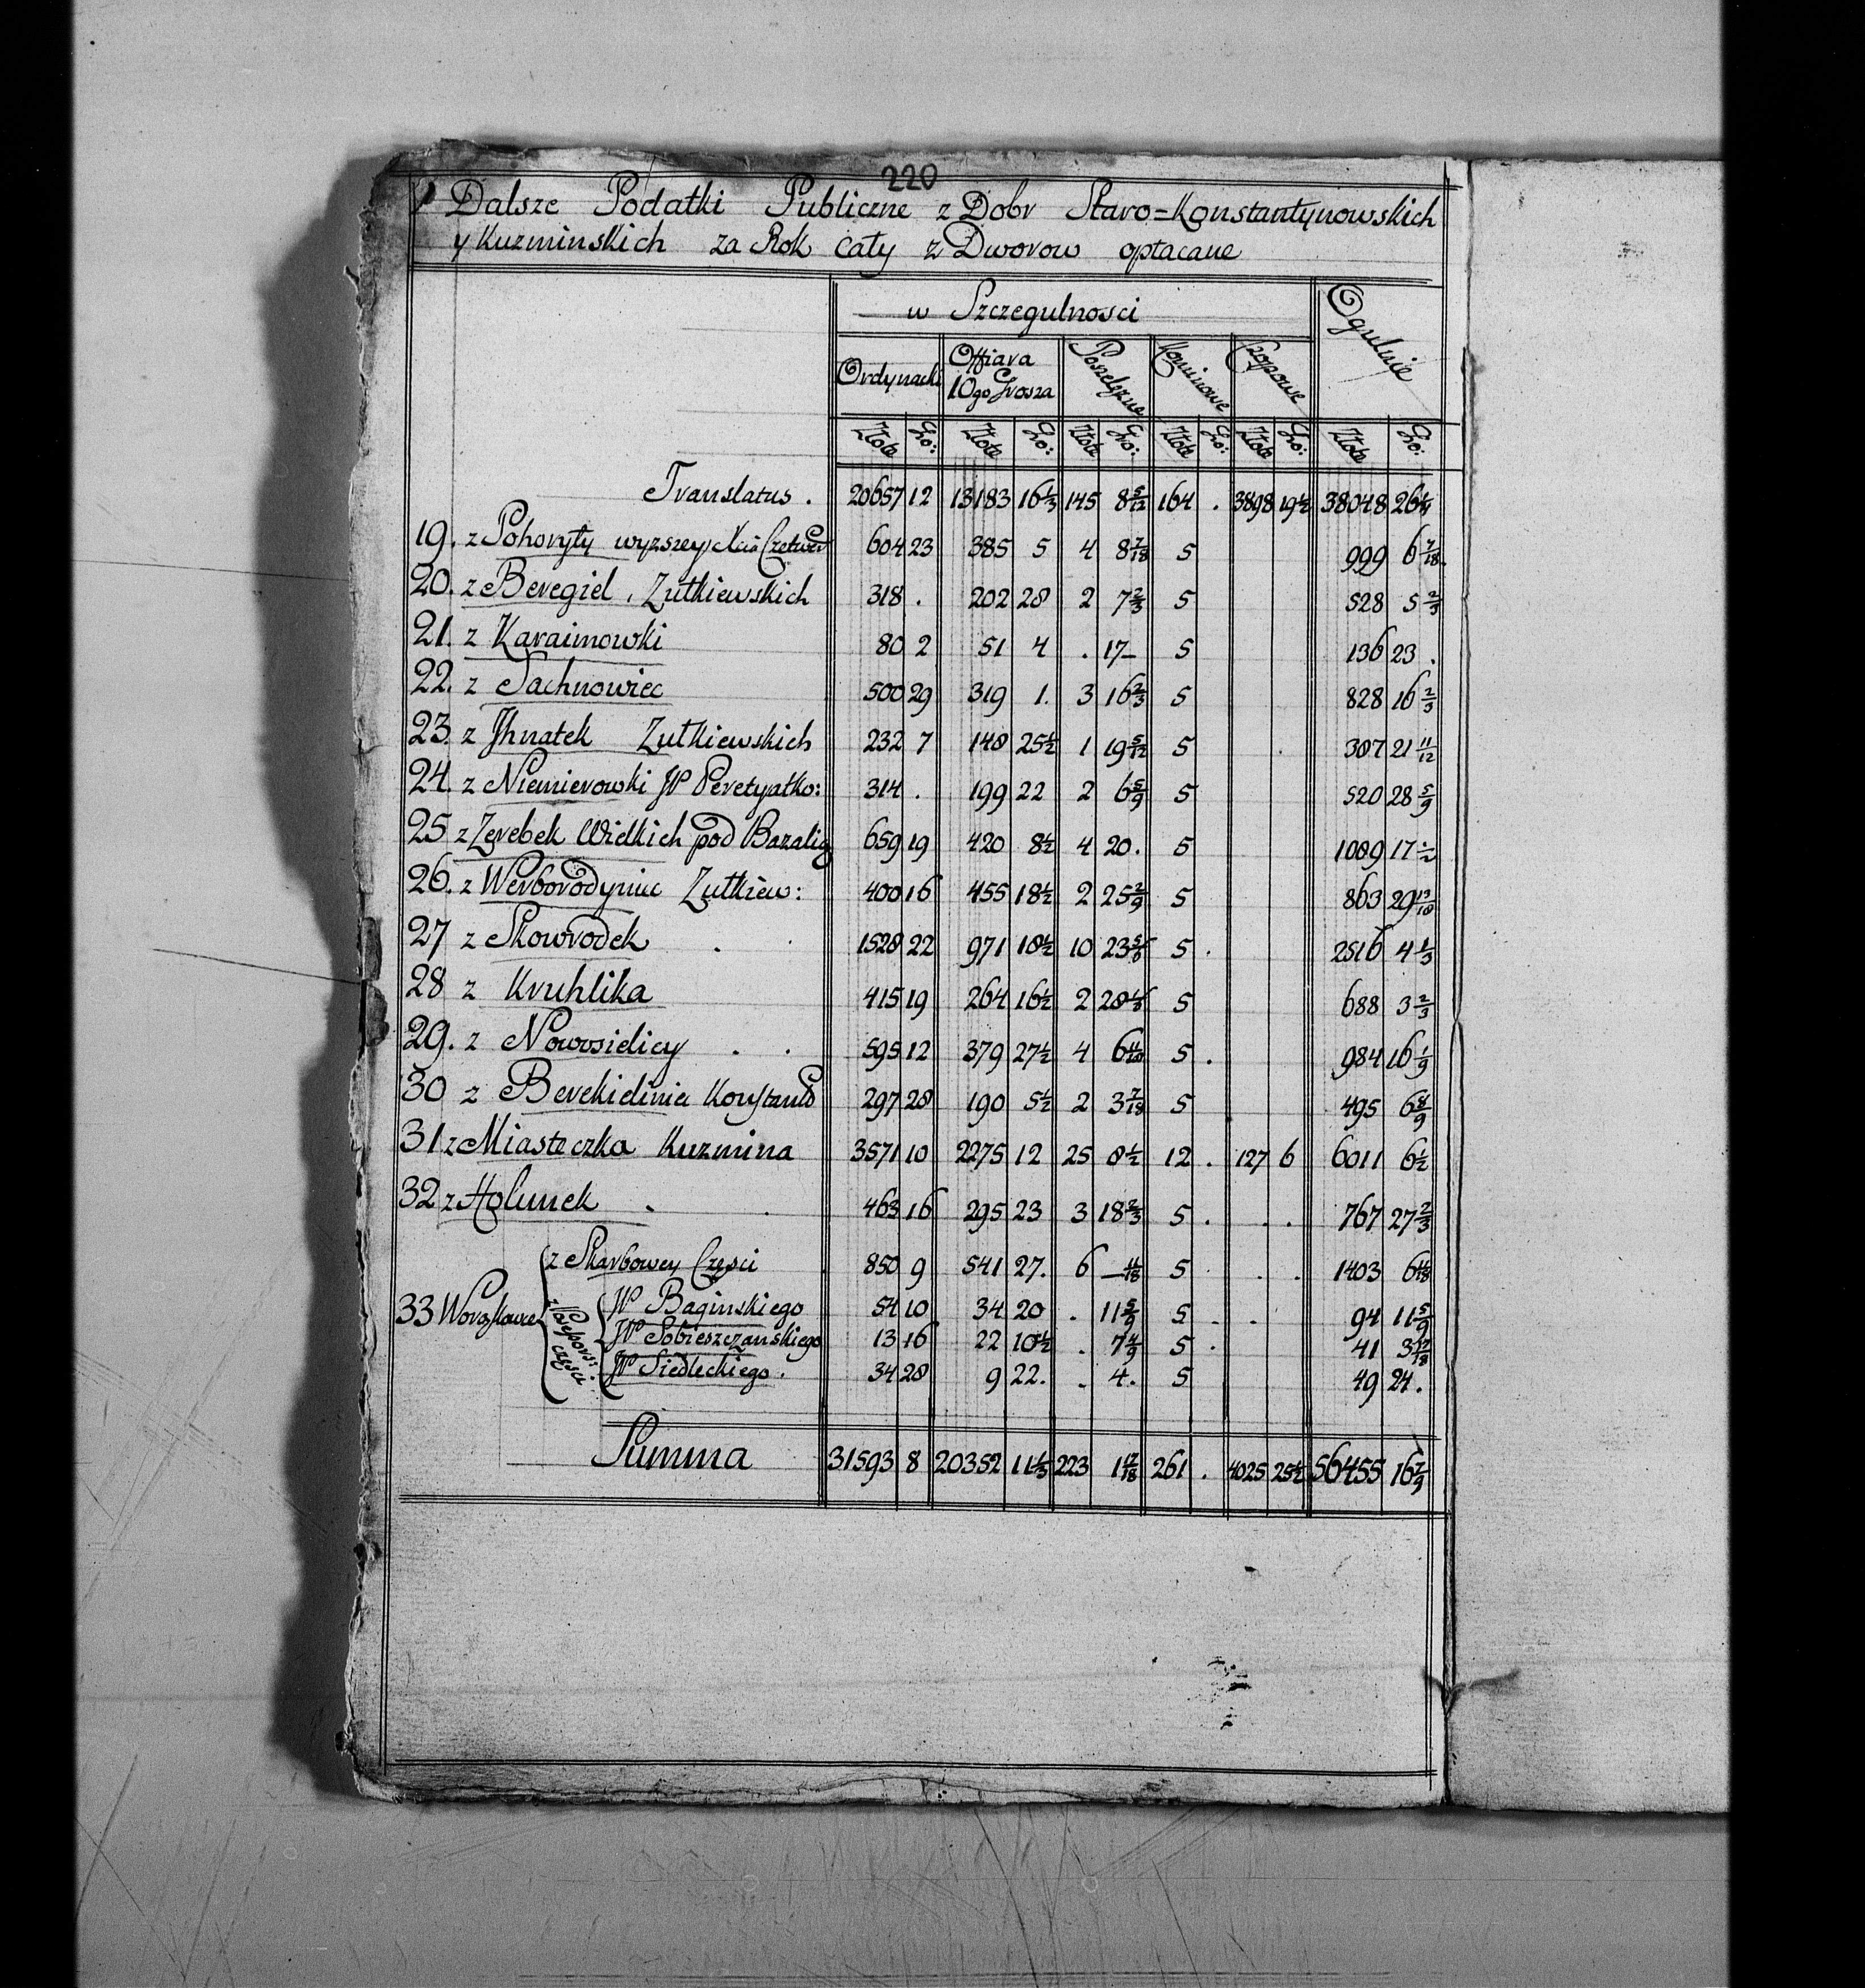 220
Dalsze Podatki Publiczne z Dobr Staro=Konstantynowskich
y Kuzminskich za Rok Cały z Dworow opłacane
w Szczegulnosci
Ogulnie
Ordynacki Offiara 10go Grosza Poszelężne Kominowe Czopowe
Złote Gro: Złote Gro: Złote Gro: Złote Gro: Złote Gro: Złote Gro:
Translatus . 20657 12 13183 16 1/3 145 8 5/12 164 . 3898 19 1/2 38048 26
19. z Pohoryły wyzszey Xcia Czetwer 604 23 385 5 4 8 7/18 5 999 6 7/18
20. z Beregiel . Zutkiewskich 318 . 202 28 2 7 2/3 5 528 5 2/3
21. z Karaimowki 80 2 51 4 . 17 - 5 136 23 .
22. z Sachnowiec 500 29 319 1. 3 16 2/3 5 828 16 2/3
23. z Jhnatek Zutkiewskich 232 7 148 25 1/2 1 19 5/12 5 387 21 11/12
24. z Niemierowki JP Peretyatko: 314 . 199 22 2 6 5/9 5 520 28 5/9
25 z Zerebek Wielkich pod Bazalią 659 19 420 8 1/2 4 20. 5 1089 17 1/2
26. z Werborodyniec Zutkiew: 400 16 455 18 1/2 2 25 2/9 5 863 29 13/18
27 z Skowrodek . . 1528 22 971 18 1/2 10 23 5/6 5 . 2516 4 1/3
28 z Kruhlika 415 19 264 16 1/2 2 28 5 688 3 2/3
29. z Nowosielicy . . 595 12 379 27 1/2 4 6 11/18 5 . 984 16 1/9
30 z Berekielinia Konstant 297 28 190 5 1/2 2 3 7/18 5 495 6 8/9
31 z Miasteczka Kuzmina 3571 10 2275 12 25 8 1/2 12 . 127 6 6011 6 1/2
32 z Holunek . . 463 16 295 23 3 18 2/3 5 . . . 767 27 2/3
z Skarbowey Częsci 850 9 541 27. 6 - 11/18 5 . . . 1403 6 11/18
33 Woroskowce JP Baginskiego 54 10 34 20 . 11 5/9 5 . . 94 11 5/9
częsci JP Sobieszczanskiego 13 16 22 10 1/2 . 7 4/9 5 . 41 3 17/18
JP Siedleckiego . 34 28 9 22. . 4. 5 49 24 .
Summa 31593 8 20352 11 1/3 223 1 17/18 261 . 4025 25 1/2 56455 16 7/9